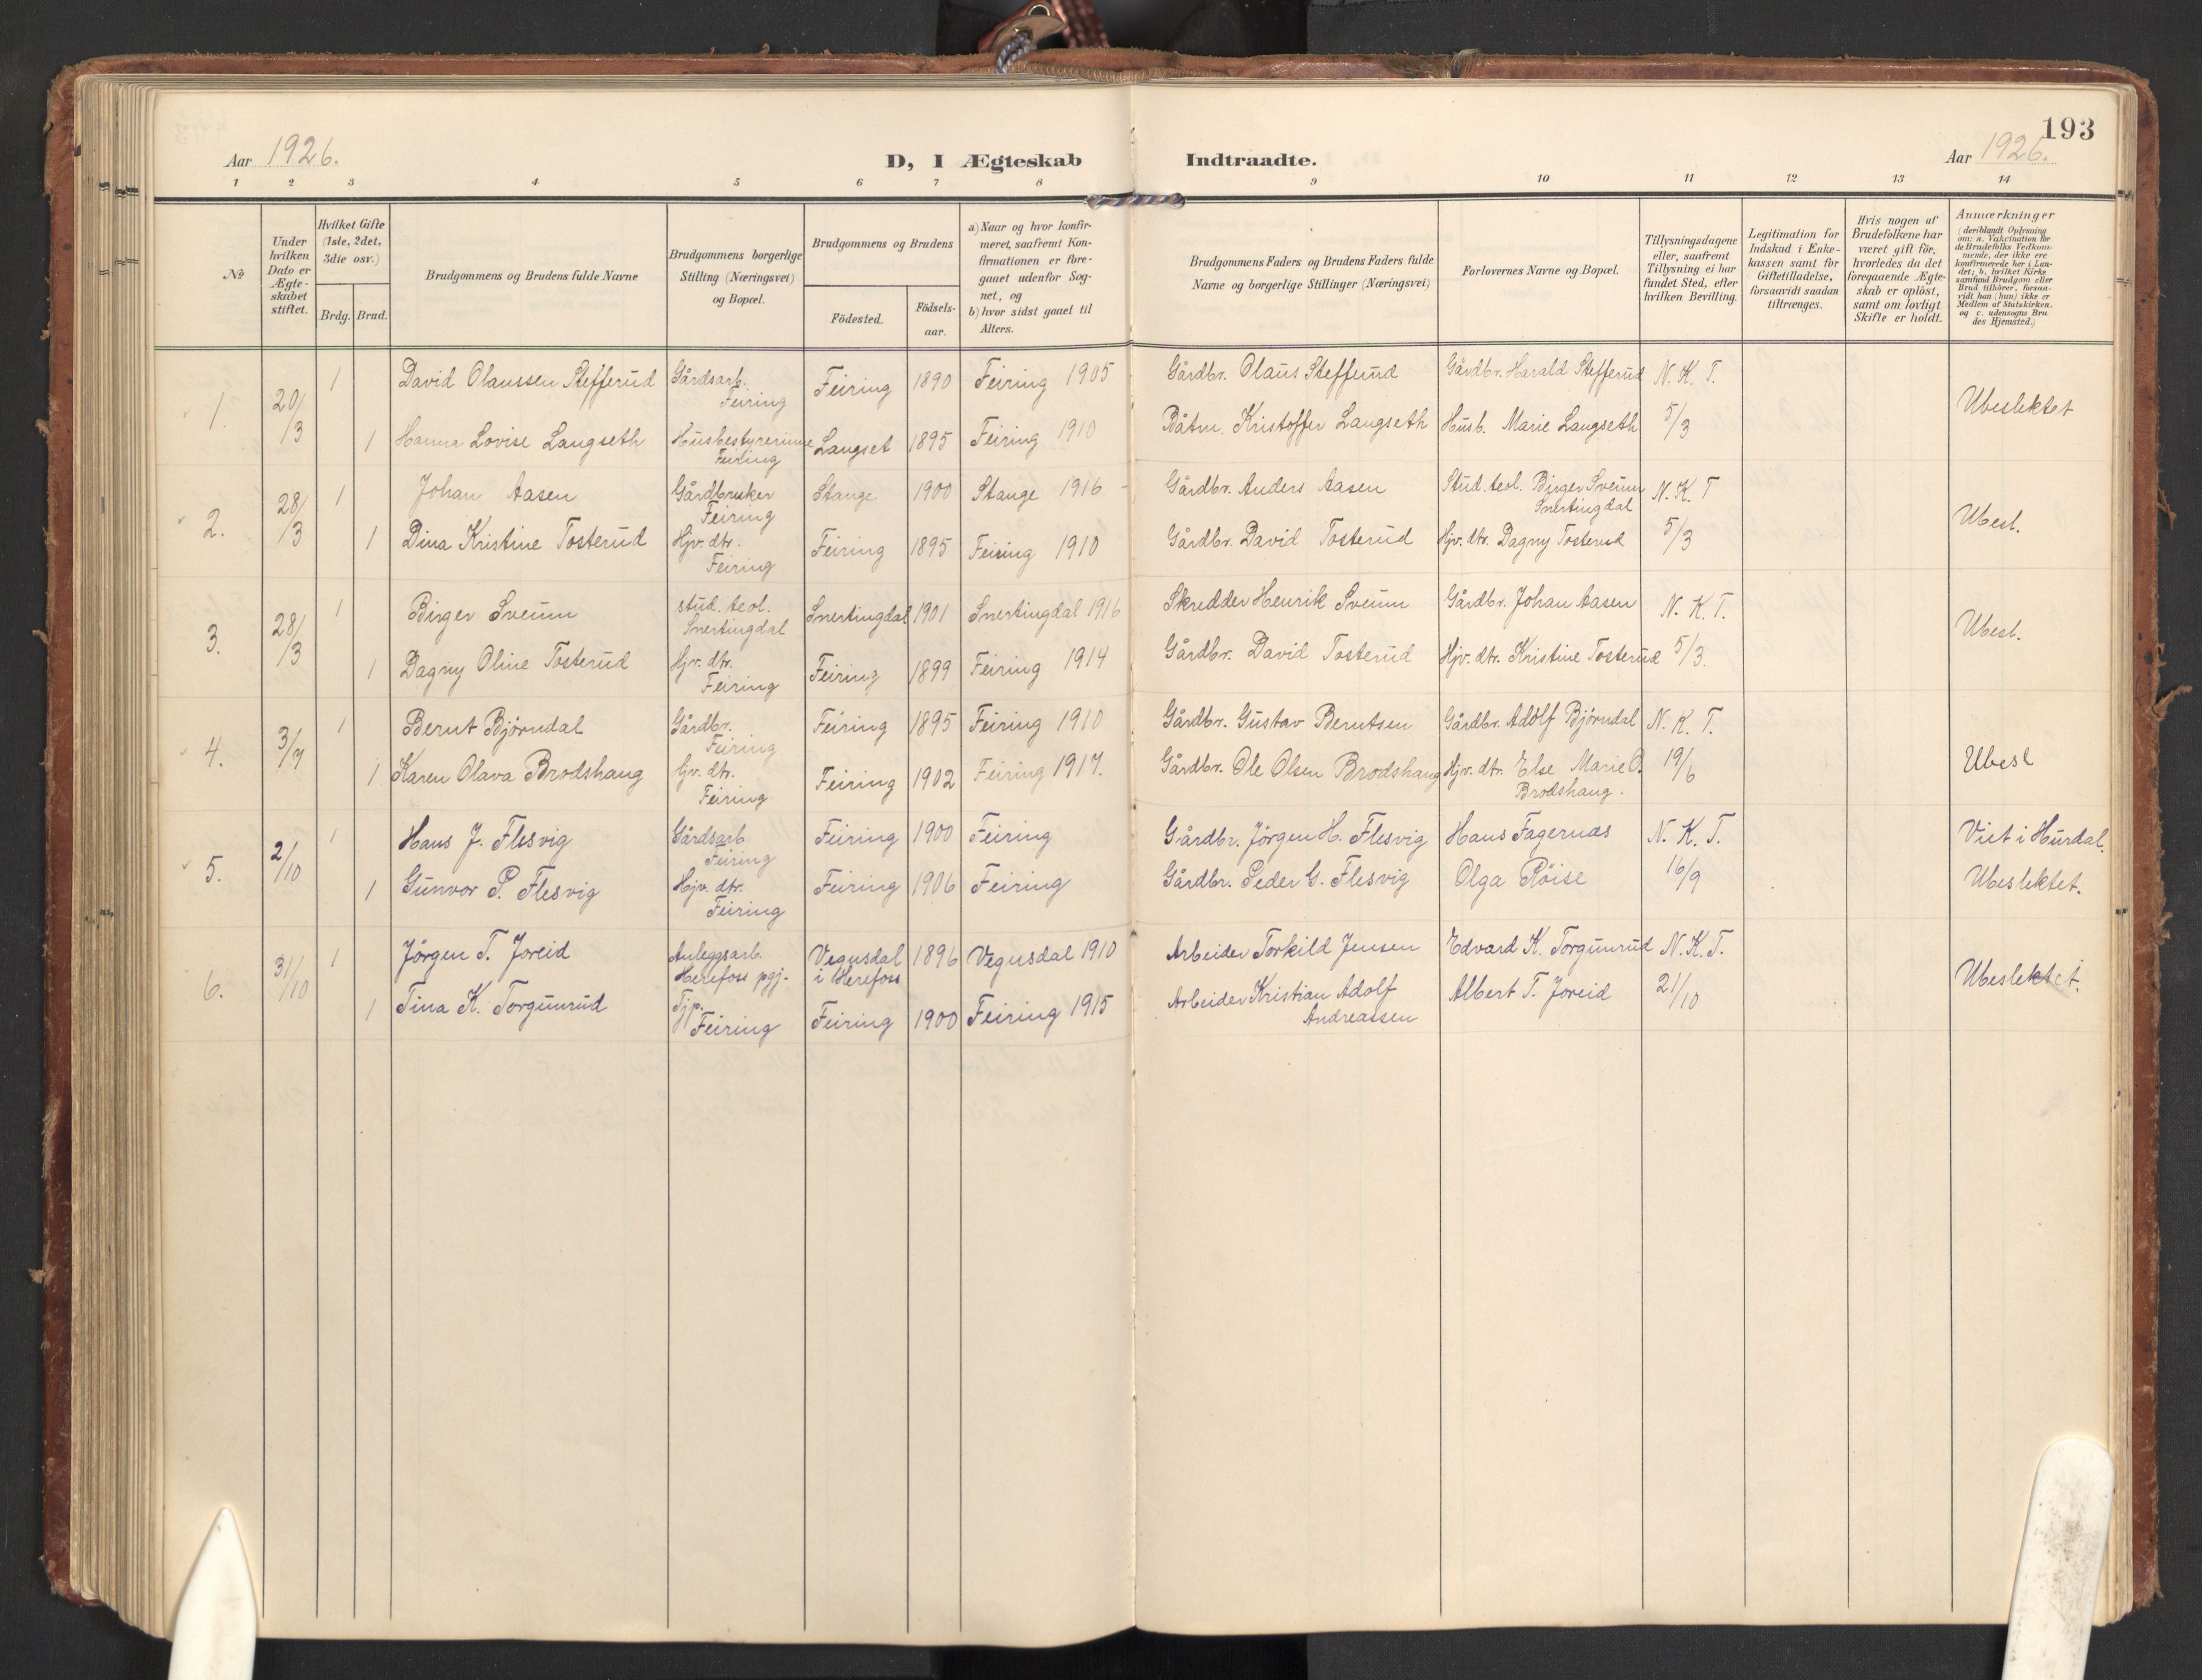 193
Aar 1926. D, I Ægteskab Indtraadte. Aar 1926.
1 2 3 4 5 6 7 8 9 10 11 12 13 14
No
Under hvilken Dato er Ægte-skabet stiftet.
Hvilket Gifte (1ste, 2det, 3die osv.)
Brdg. Brud.
Brudgommens og Brudens fulde Navne
Brudgommens borgerlige Stilling (Næringsvei) og Bopæl.
Brudgommens og Brudens
Födested. Födsels-aar.
a) Naar og hvor konfir-meret, saafremt Kon-firmationen er fore-gaaet udenfor Sog-net, og
b) hvor sidst gaaet til Alters.
Brudgommens Faders og Brudens Faders fulde Navne og borgerlige Stillinger (Næringsvei)
Forlovernes Navne og Bopæl.
Tillysningsdagene eller, saafremt Tillysning ei har fundet Sted, efter hvilken Bevilling.
Legitimation for Indskud i Enke-kassen samt for Giftetilladelse, forsaavidt saadan tiltrænges.
Hvis nogen af Brudefolkene har været gift för, hvorledes da det foregaaende Ægte-skab er oplöst, samt om lovligt Skifte er holdt.
Anmærkninger
(deriblandt Oplysning om: a. Vakcination for de Brudefolks Vedkom-mende, der ikke ere konfirmerede her i Lan-det; b. hvilket Kirke samfund Brudgom eller Brud tilhörer, forsaa-vidt han (hun) ikke er Medlem af Statskirken. og c. udensogns Bru des Hjemsted.)
1. 20/3 1 David Olaussen Stefferud Gårdsarb. Feiring Feiring 1890 Feiring 1905 Gårdbr. Olaus Stefferud Gårdbr. Harald Stefferud N. K. T. Ubeslektet
1 Hanna Lovise Langseth Husbestyrerinne Feiring Langset 1895 Feiring 1910 Båtm. Kristoffer Langseth Husb. Marie Langseth 5/3
2. 28/3 1 Johan Aasen Gårdbruker Feiring Stange 1900 Stange 1916 - Gårdbr. Anders Aasen Stud. teol. Birger Sveum Snertingdal N. K. T Ubesl.
1 Dina Kristine Tosterud Hjv. dtr. Feiring Feiring 1895 Feiring 1910 Gårdbr. David Tosterud Hjv. dtr. Dagny Tosterud 5/3
3. 28/3 1 Birger Sveum stud. teol. Snertingdal Snertingdal 1901 Snertingdal 1916 Skredder Henrik Sveum Gårdbr. Johan Aasen N. K. T. Ubesl.
1 Dagny Oline Tosterud Hjv. dtr. Feiring Feiring 1899 Feiring 1914 Gårdbr. David Tosterud Hjv. dtr. Kristine Tosterud 5/3.
4. 3/7 1 Bernt Bjørndal Gårdbr. Feiring Feiring 1895 Feiring 1910 Gårdbr. Gustav Berntsen Gårdbr. Adolf Bjørndal N. K. T. Ubesl
1 Karen Olava Brodshaug hjv. dtr. Feiring Feiring 1902 Feiring 1917. Gårdbr. Ole Olsen Brodshaug Hjv. dtr. Else Marie O. Brodshaug. 19/6
5. 2/10 1 Hans J. Flesvig Gårdsarb Feiring Feiring 1900 Feiring Gårdbr. Jörgen H. Flesvig Hans Fagernæs N. K. T. Viet i Hurdal.
1 Gunvor P. Flesvig Hjv. dtr. Feiring Feiring 1906 Feiring Gårdbr. Peder G. Flesvig Olga Röise 16/9 Ubeslektet.
6. 31/10 1 Jörgen T. Joreid Anleggsarb. Herefoss pgj. Vegusdal i Herefoss 1896 Vegusdal 1910 Arbeider Torkild Jensen Edvard K. Torgunrud N. K. T. Ubeslektet.
1 Tina K. Torgunrud Tjp. Feiring Feiring 1900 Feiring 1915 Arbeider Kristian Adolf Andreassen Albert T. Joreid 21/10